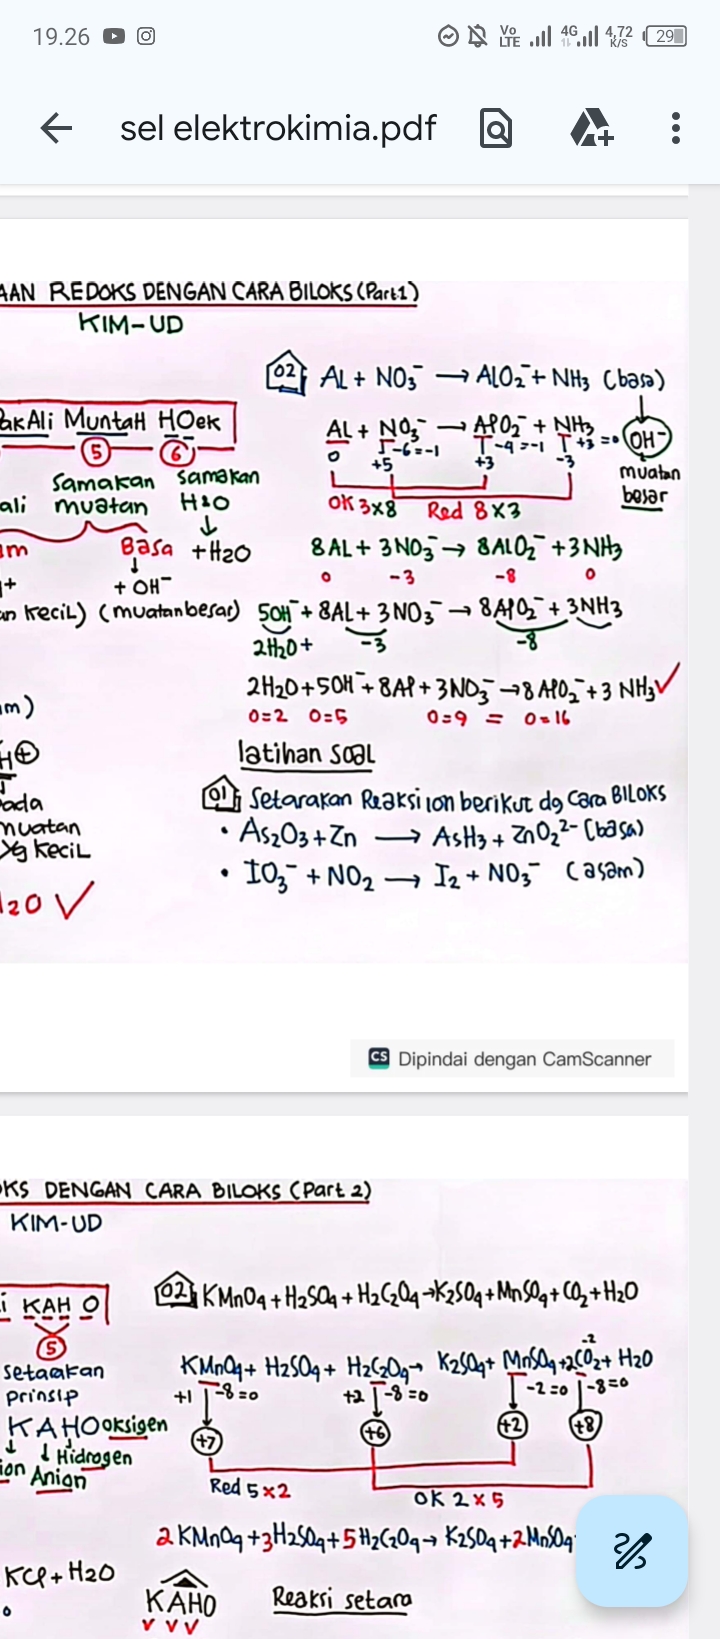 19.26
Vo LTE 4G 4,72 K/S 29
sel elektrokimia.pdf
AAN REDOKS DENGAN CARA BILOKS (Part 1)
KIM-UD
02 AL + NO₃⁻ → ALO₂⁻ + NH₃ (basa)
PakAli MuntaH HOek
5 6
AL + NO₃⁻ → AlO₂⁻ + NH₃ OH⁻
0 -6=-1 -4=-1 +3=0
+5 +3 -3
muatan
besar
Samakan Samakan
ali muatan H&O
OK 3x8 Red 8x3
am Basa +H2O
8AL + 3NO₃⁻ → 8ALO₂⁻ + 3NH₃
0 -3 -8 0
+ + OH⁻
an kecil) (muatan besar)
5OH⁻ + 8AL + 3NO₃⁻ → 8AlO₂⁻ + 3NH₃
2H₂O + -3 -8
2H₂O + 5OH⁻ + 8Al + 3NO₃⁻ → 8AlO₂⁻ + 3NH₃ ✓
0=2 0=5 0=9 = 0=16
am)
H⊕
ada
muatan
yg kecil
H₂O ✓
latihan soal
01 Setarakan Reaksi ion berikut dg Cara BILOKS
• As₂O₃ + Zn → AsH₃ + ZnO₂²⁻ (basa)
• IO₃⁻ + NO₂ → I₂ + NO₃⁻ (asam)
CS Dipindai dengan CamScanner
OKS DENGAN CARA BILOKS (Part 2)
KIM-UD
i KAH O
5
setarakan
prinsip
KAHO oksigen
Hidrogen
ion Anion
02 KMnO₄ + H₂SO₄ + H₂C₂O₄ → K₂SO₄ + MnSO₄ + CO₂ + H₂O
KMnO₄ + H₂SO₄ + H₂C₂O₄ → K₂SO₄ + MnSO₄ + 2CO₂ + H₂O
-2
+1 -8=0 +2 -8=0 -2=0 -8=0
+7 +6 +2 +8
Red 5x2 OK 2x5
2KMnO₄ + 3H₂SO₄ + 5H₂C₂O₄ → K₂SO₄ + 2MnSO₄
KCl + H₂O
KAHO Reaksi setara
✓ ✓ ✓